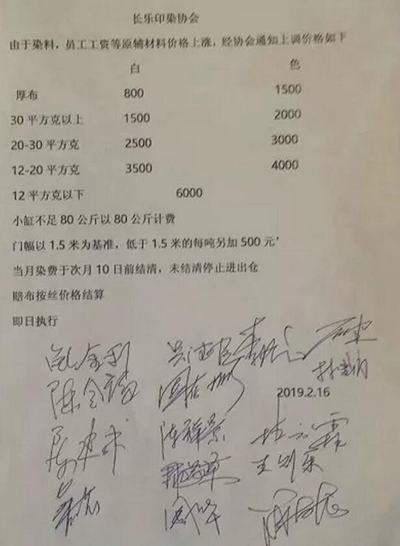 长乐印染协会
由于染料，员工工资等原辅材料价格上涨，经协会通知上调价格如下
白 色
厚布 800 1500
30 平方克以上 1500 2000
20-30 平方克 2500 3000
12-20 平方克 3500 4000
12 平方克以下 6000
小缸不足 80 公斤以 80 公斤计费
门幅以 1.5 米为基准，低于 1.5 米的每吨另加 500 元'
当月染费于次月 10 日前结清，未结清停止进出仓
赔布按丝价格结算
即日执行
2019.2.16